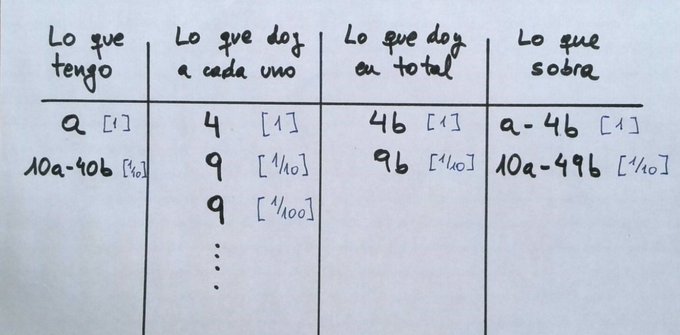 Lo que tengo | Lo que doy a cada uno | Lo que doy en total | Lo que sobra
a [1] | 4 [1] | 4b [1] | a-4b [1]
10a-40b [1/10] | 9 [1/10] | 9b [1/10] | 10a-49b [1/10]
9 [1/100]